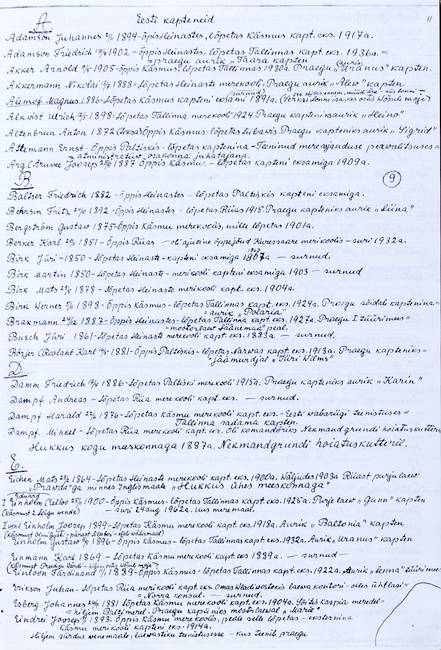 A
Eesti kapteneid
11
Adamson Johannes 1899 - õppis Heinastes, lõpetas Käsmus kapt. eks. 1917a.
Adamson Friedrich 1902 - õppis Heinastes, lõpetas Tallinnas kapt. eks. 1936a =
= praegu aurik "Taara" kapten
Akker Arnold 1905 - õppis Käsmus, lõpetas Tallinnas 1930a. Praegu "Uranus" kapten.
Akkermann Nikolai 1888 - lõpetas Heinaste merekooli. Praegu aurik "Alev" kapten
Magnus 1886 - lõpetas Käsmus kapteni eksami 1891a.
Alwist Ulrich 1898 - lõpetas Tallinna merekooli 1924. Praegu kapteniks aurik "Heino"
Altenbrun Anton 1872 õppis Käsmus - lõpetas Liibavis. Praegu kapteniks aurik "Sigrid"
Attemann Ernst - õppis Paltiskis - lõpetas kaptenina - Teeninud mereasjanduse peavalitsuses =
= administratiiv osakonna juhatajana.
Joosep 1887 õppis Käsmus - lõpetas kapteni eksamiga 1909a.
B.
9
Baltser Friedrich 1882 - õppis Heinastes - lõpetas Paltiskis kapteni eksamiga.
Behrsin Fritz 1892 - õppis Heinastes - lõpetas Riias 1915. Praegu kapteniks aurik "Liina"
Bergström Gustav 1875 õppis Käsmu merekoolis, mille lõpetas 1901a.
Berker Karl 1851 - õppis Riias - oli ajutine õppejõud Kuressaare merikoolis - suri 1932a.
Birk Jüri - 1850 - lõpetas Heinaste - kapteni eksamiga - surnud.
Birk Martin 1850 - lõpetas Heinaste - merikooli kapteni eksamiga 1903 - surnud
Birk Mats 1878 - lõpetas Heinaste merekooli kapt. eks. 1904a.
Birk Werner 1898 - õppis Käsmus - lõpetas Tallinnas kapt. eks. 1924a. Praegu sõidab kaptenina =
= aurik "Polaria"
Brakmann 1887 - õppis Heinastes - lõpetas Tallinna kapt. eks. 1927a. Praegu I tüürimees =
= mootorlaev Läänemaa peal.
Busch Jüri 1861 - lõpetas Heinaste merekooli kapt. eks. 1883a - surnud.
Börjer (Reolaht) Karl 1881 - õppis Paltiskis - lõpetas Narvas kapt. eks. 1913a. Praegu kapteniks =
= jäämurdjal "Jüri Wilms"
D.
Damm Friedrich 1886 - lõpetas Paltiski merekooli 1915a. Praegu kapteniks aurik "Karin"
Dampf Andreas - lõpetas Riia merekooli kapt. eks. - surnud.
Dampf Harald 1876 - lõpetas Käsmu merekooli kapt. eks. - Eesti wabariigi teenistuses =
Tallinna sadama kapten.
Dampf. Mihkel - lõpetas Riia merekooli kapt. eks. Oli komandöriks Nekmandgrundi hoiatuskutteril
Hukkus kogu meeskonnaga 1887a. Nekmandgrundi hoiatuskutteril.
E.
Eichen Mats 1864 - lõpetas Heinaste merekooli kapt. eks. 1900a. Wäljudes 1903a Riiast purjelaev
"Prawda" ga minnes Inglismaale "Hukkus ühes meeskonnaga"
Eduard
Einholm 1900 - õppis Käsmus - lõpetas Tallinnas kapt. eks. 1925a. Purje laev "Gunn" kapten
(Käsmus 2 klassi wende) - suri 24 aug. 1962a. Uus meremaal.
Einholm Joosep 1899 - lõpetas Käsmu merekooli kapt. eks. 1918a. Aurik "Baltonia" kapten
Einholm Gustav 1896 - õppis Käsmus - lõpetas Tallinnas kapt. eks. 1932a. Aurik "Uranus" kapten
Einmann Karl 1869 - Käsmu merekooli kapt. eks 1889a. - surnud -
Einloon Ferdinand 1899 - õppis Käsmus - lõpetas Tallinnas kapt. eks. 1922a. Aurik "Lenna" tüürimees
Erikson Juhan - lõpetas Riia merikooli kapt. eks. Omas Wladiwostokis laewa kontori - oles ühtlasi =
- Norra konsul. - surnud.
Esberg Johannes 1881 lõpetas Käsmu merekooli kapt. eks. 1904a. Sõitis Kaspia merel =
= hiljem Palti merel. Praegu kapteniks mootorlaewal "Maria"
Eindrei Joosep 1893. Õppis Käsmu merekoolis, peale selle lõpetas - eksternina
Käsmu merekooli kapteni eks. 1914a.
Hiljem siirdus wenemaale, laewastiku teenistusse - kus teenib praegu